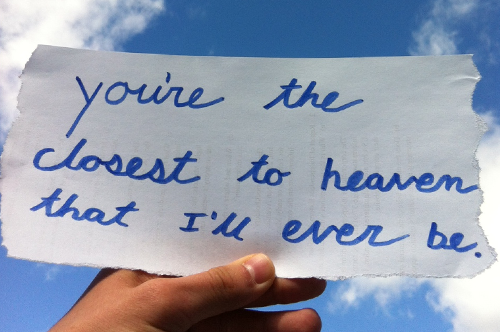 you're the
closest to heaven
that I'll ever be.